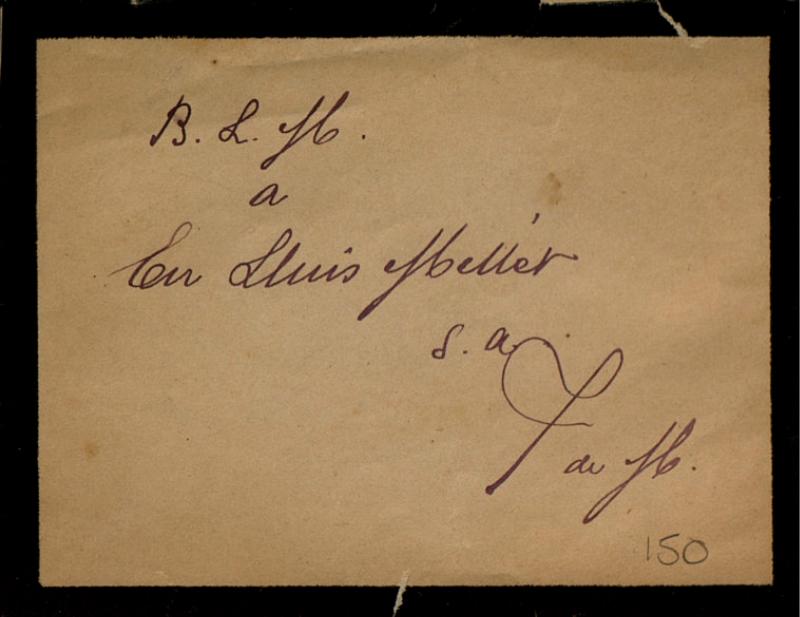 B. L. M.
a
En Lluis Mellét
s. a.
F de M.
150